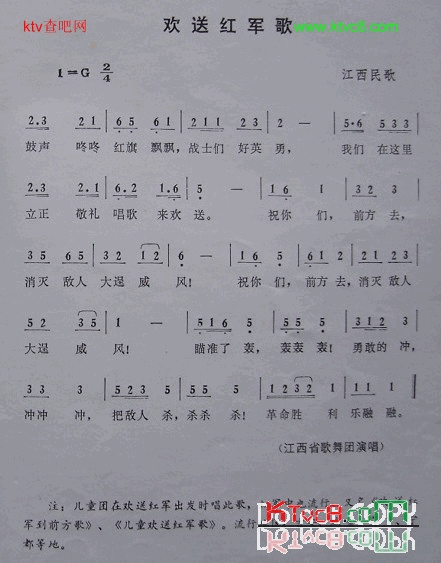 ktv查吧网
欢送红军歌
www.ktvc8.com
1=G 2/4
江西民歌
2.3 2 1 | 6 5 6 1 | 2 1 1 1 2 3 | 2 — | 5·6 5 3 3
鼓声 咚咚 红旗 飘飘,战士们 好英 勇, 我们 在这里
2.3 2.1 | 6.2 1.6 | 5 — | 1 6 1 | 3 2 3
立正 敬礼 唱歌 来欢 送。 祝你 们, 前方 去,
3 5 6 5 | 2 3 1 2 | 5 — | 1 6 5 | 6 1 2 | 0 1 6 1
消灭 敌人 大逞 威风! 祝你 们, 前方 去,消灭 敌人
5 2 3 5 | 1 — | 5 1 6 5 | 1 6 1 | 2 3 2 3
大逞 威 风! 瞄准了 轰, 轰轰 轰! 勇敢的 冲,
3 3 3 | 5 2 3 5 | 5 5 5 | 1 2 3 2 | 1 6 1
冲冲 冲, 把敌人 杀,杀杀 杀! 革命胜 利 乐融融。
(江西省歌舞团演唱)
注:儿童团在欢送红军出发时唱此歌,
军到前方歌》、《儿童欢送红军歌》。流行
都等地。
KTvc8.com